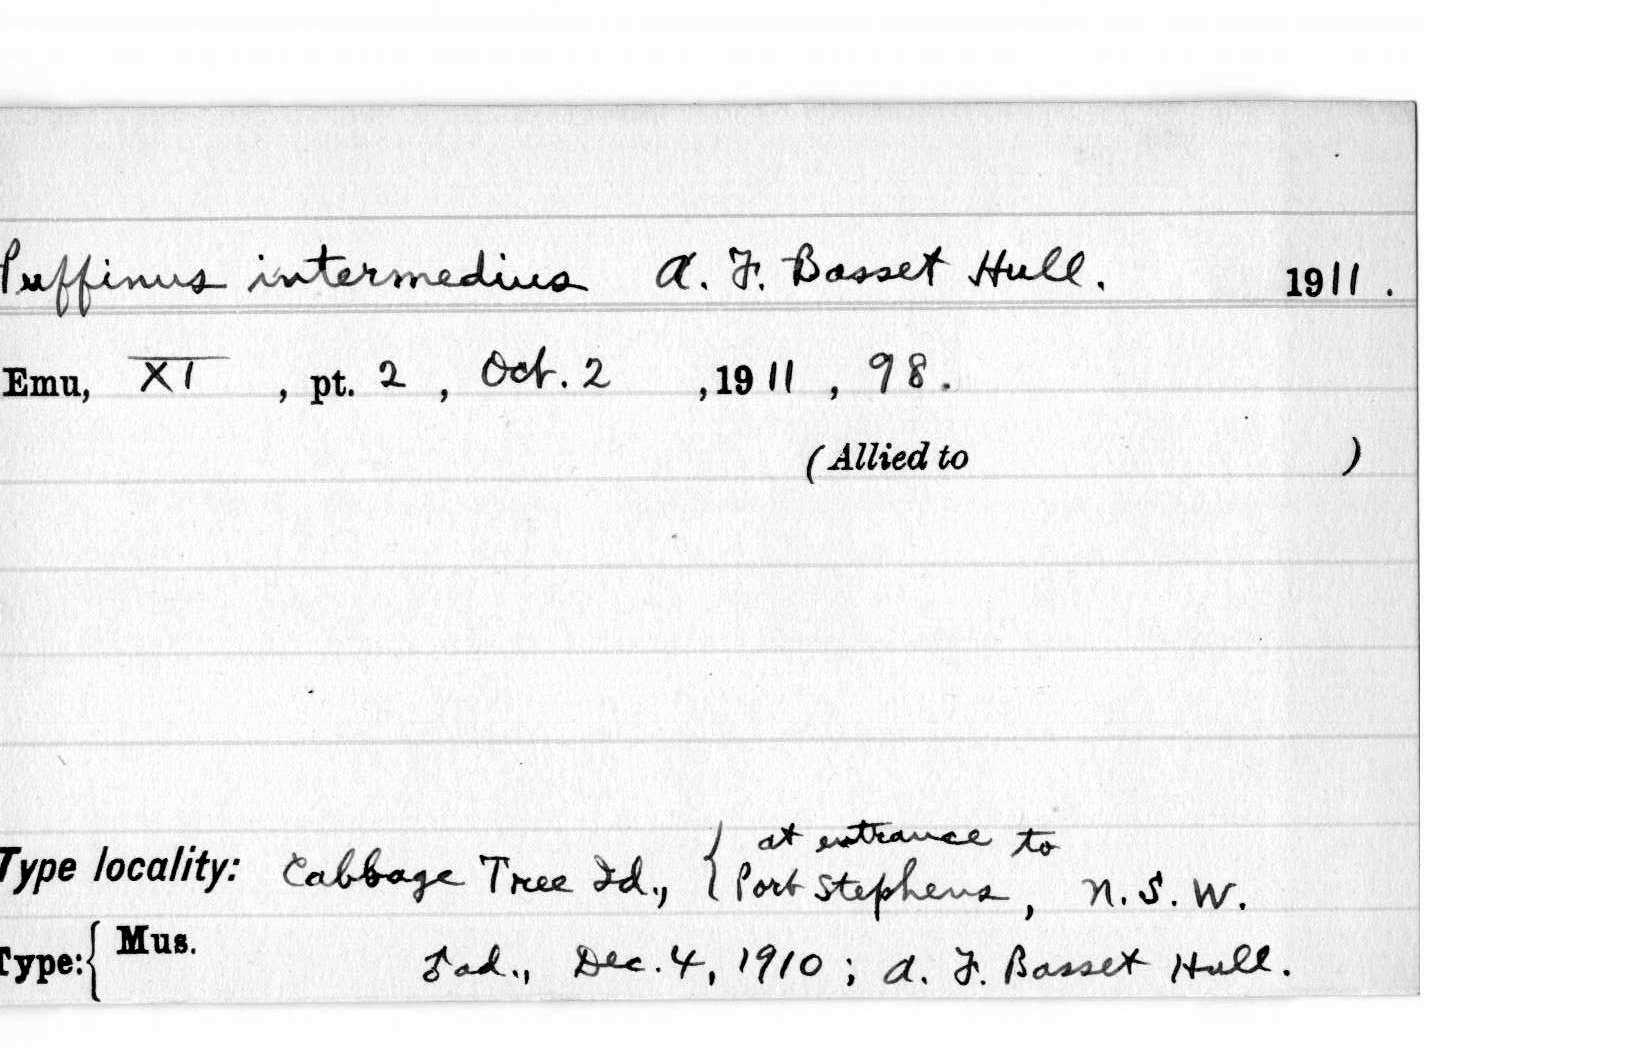 Puffinus intermedius A. F. Basset Hull. 1911.
Emu, XI, pt. 2, Oct. 2, 1911, 98.
(Allied to )
at entrance to
Type locality: Cabbage Tree Id., { Port Stephens, N.S.W.
Type: { Mus. ad., Dec. 4, 1910; A. F. Basset Hull.